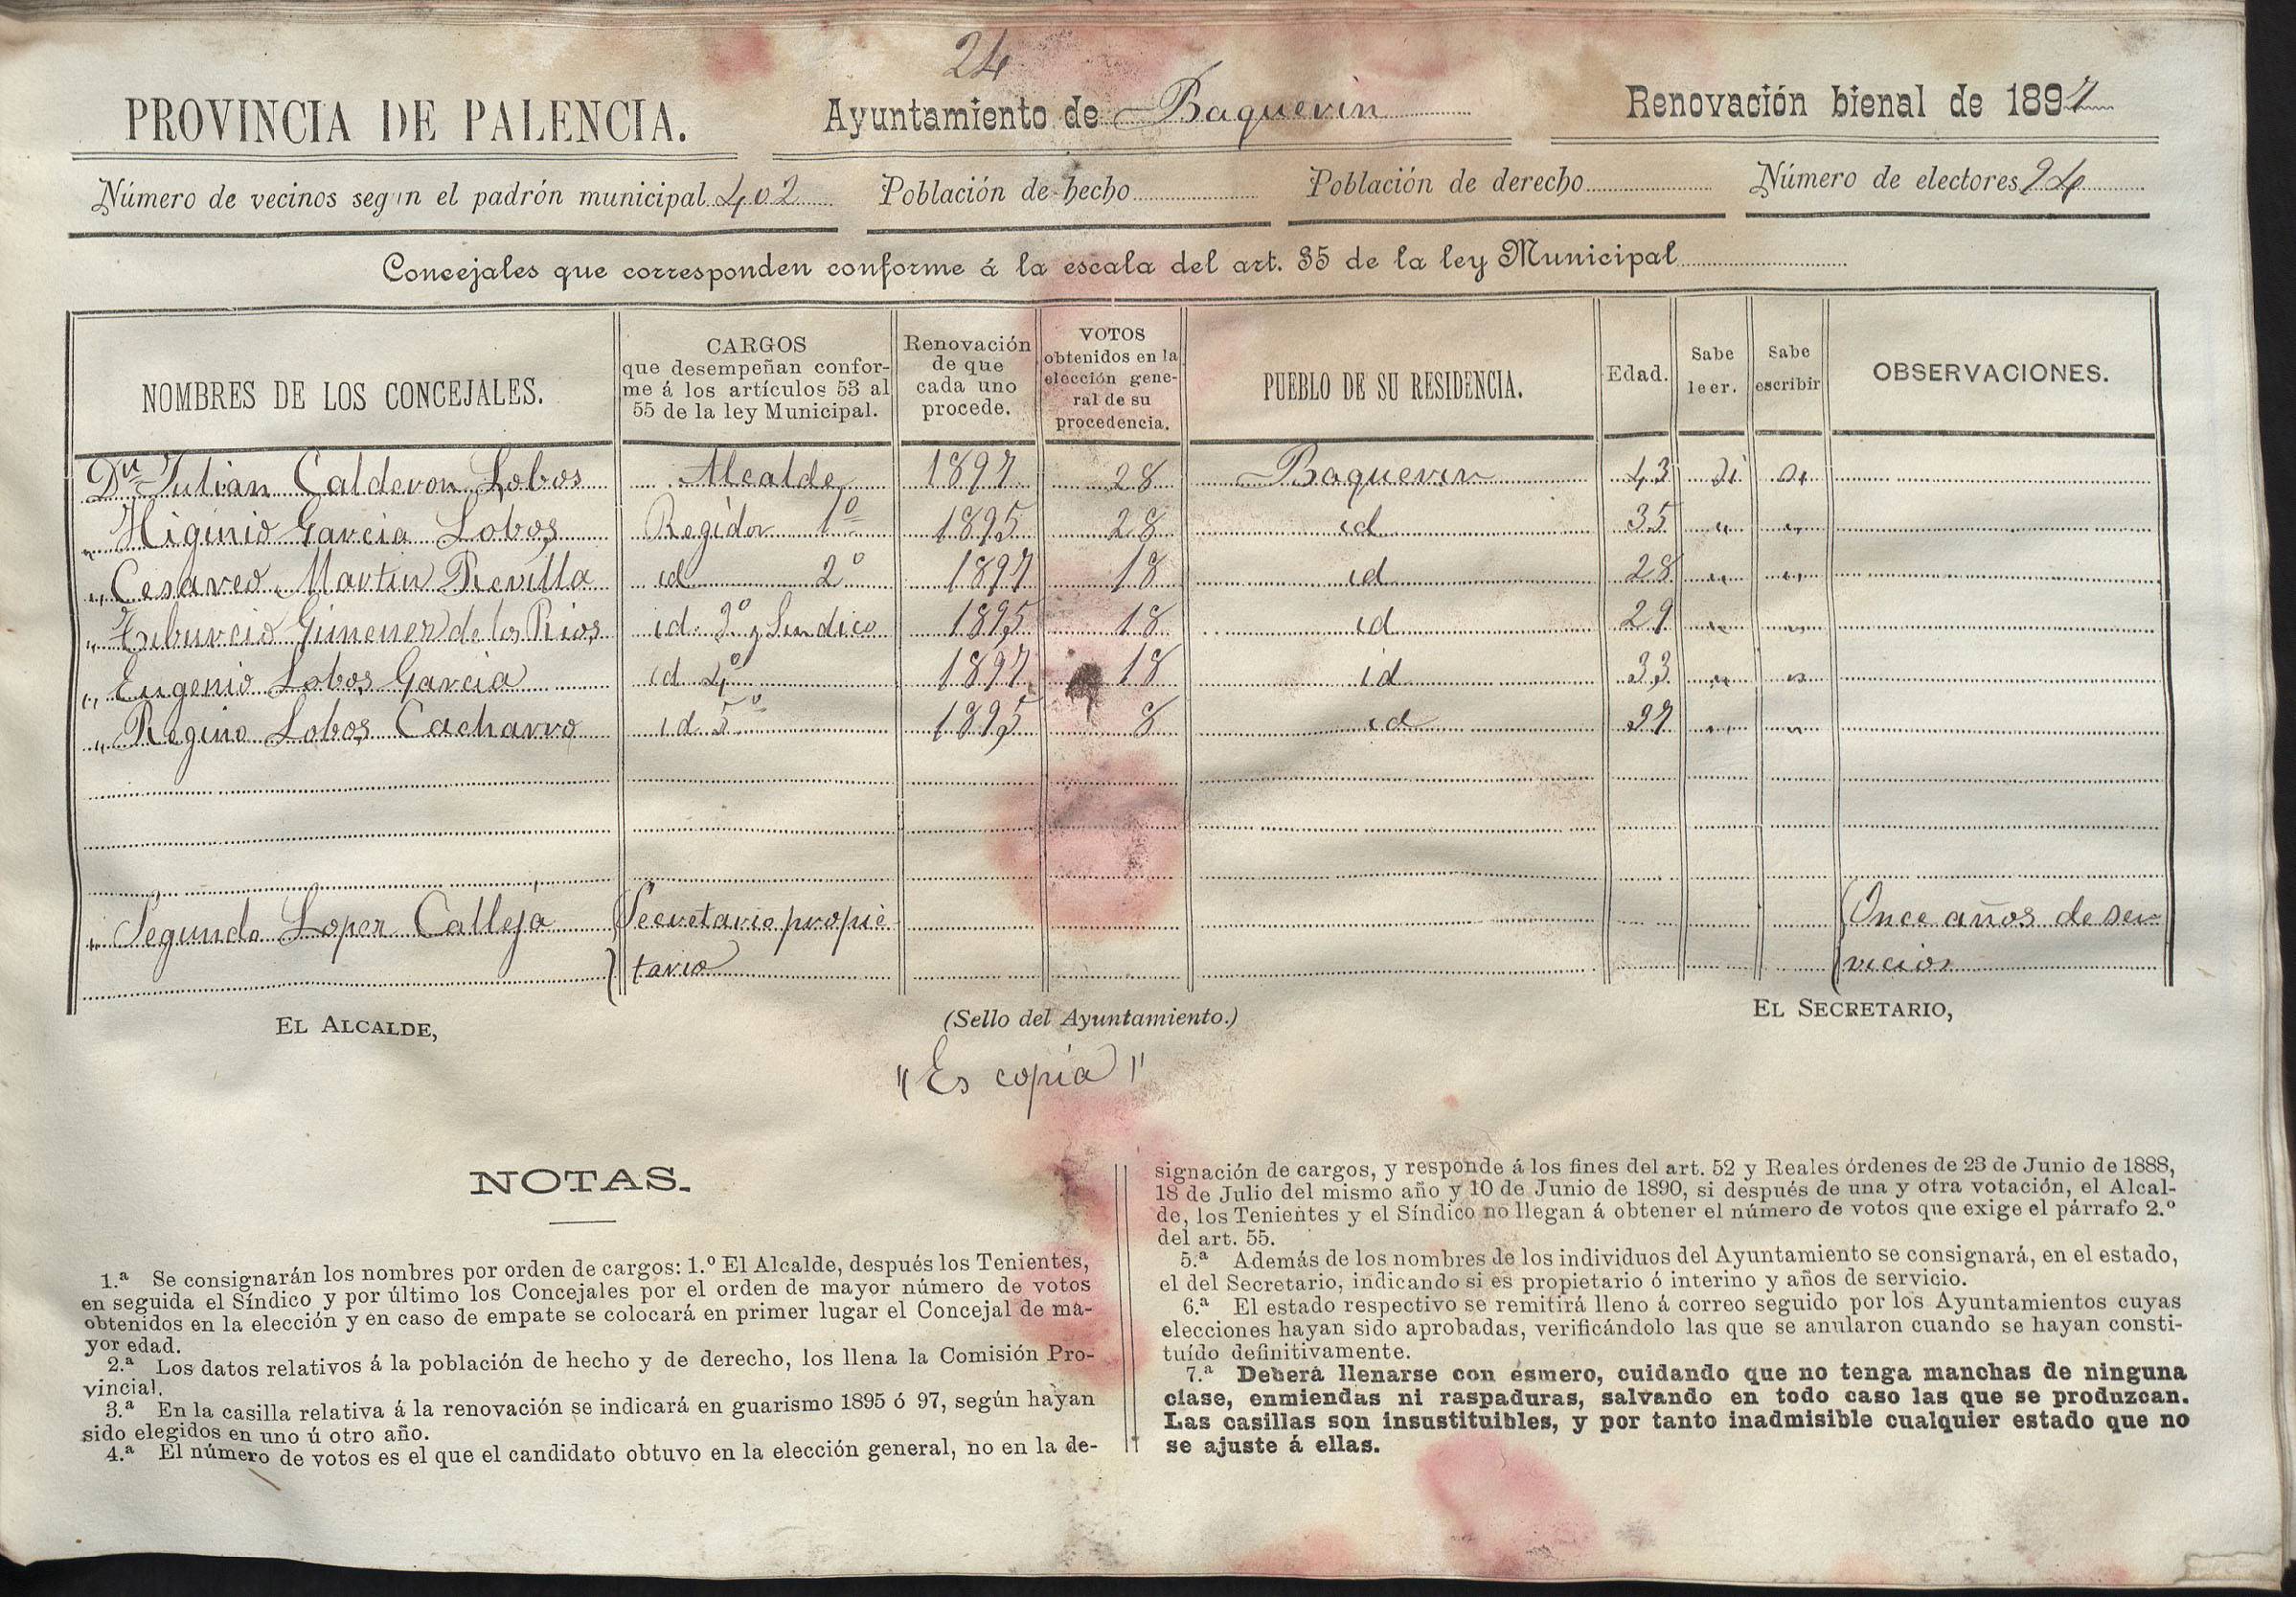 24
PROVINCIA DE PALENCIA. Ayuntamiento de Baquerin Renovación bienal de 1897
Número de vecinos según el padrón municipal 402 Población de hecho Población de derecho Número de electores 94
Concejales que corresponden conforme á la escala del art. 35 de la ley Municipal
NOMBRES DE LOS CONCEJALES.
CARGOS
que desempeñan confor-
me á los artículos 53 al
55 de la ley Municipal.
Renovación
de que
cada uno
procede.
VOTOS
obtenidos en la
elección gene-
ral de su
procedencia.
PUEBLO DE SU RESIDENCIA.
Edad.
Sabe
leer.
Sabe
escribir
OBSERVACIONES.
Dn Julián Calderon Lobos Alcalde 1897 28 Baquerin 43 si si
" Higinio Garcia Lobos Regidor 1º 1895 28 id 35 " "
" Cesareo Martin Revilla id 2º 1897 18 id 28 " "
" Tiburcio Gimenez de los Rios id 3º y Sindico 1895 18 id 29 " "
" Eugenio Lobos Garcia id 4º 1897 18 id 33 " "
" Regino Lobos Cacharro id 5º 1895 8 id 37 " "
" Segundo Lopez Calleja Secretario propie Once años de ser-
tario vicios
EL ALCALDE, (Sello del Ayuntamiento.) EL SECRETARIO,
"Es copia"
NOTAS.
1.ª Se consignarán los nombres por orden de cargos: 1.º El Alcalde, después los Tenientes,
en seguida el Síndico y por último los Concejales por el orden de mayor número de votos
obtenidos en la elección y en caso de empate se colocará en primer lugar el Concejal de ma-
yor edad.
2.ª Los datos relativos á la población de hecho y de derecho, los llena la Comisión Pro-
vincial.
3.ª En la casilla relativa á la renovación se indicará en guarismo 1895 ó 97, según hayan
sido elegidos en uno ú otro año.
4.ª El número de votos es el que el candidato obtuvo en la elección general, no en la de-
signación de cargos, y responde á los fines del art. 52 y Reales órdenes de 23 de Junio de 1888,
18 de Julio del mismo año y 10 de Junio de 1890, si después de una y otra votación, el Alcal-
de, los Tenientes y el Síndico no llegan á obtener el número de votos que exige el párrafo 2.º
del art. 55.
5.ª Además de los nombres de los individuos del Ayuntamiento se consignará, en el estado,
el del Secretario, indicando si es propietario ó interino y años de servicio.
6.ª El estado respectivo se remitirá lleno á correo seguido por los Ayuntamientos cuyas
elecciones hayan sido aprobadas, verificándolo las que se anularon cuando se hayan consti-
tuído definitivamente.
7.ª Deberá llenarse con esmero, cuidando que no tenga manchas de ninguna
clase, enmiendas ni raspaduras, salvando en todo caso las que se produzcan.
Las casillas son insustituibles, y por tanto inadmisible cualquier estado que no
se ajuste á ellas.